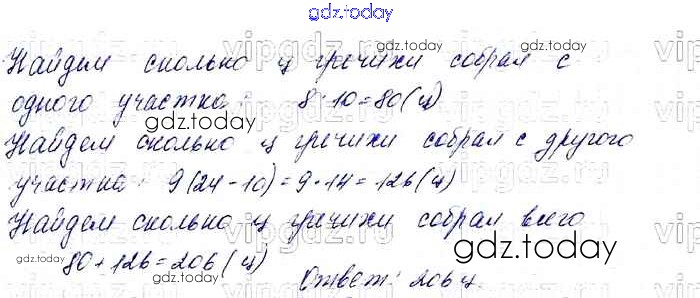 gdz.today
Найдем сколько ц гречихи собрал с
одного участка: 8·10=80(ц)
Найдем сколько ц гречихи собрал с другого
участка: 9(24-10)=9·14=126(ц)
Найдем сколько ц гречихи собрал всего
80+126=206(ц) Ответ: 206 ц.
gdz.today
gdz.today
gdz.today
gdz.today
gdz.today